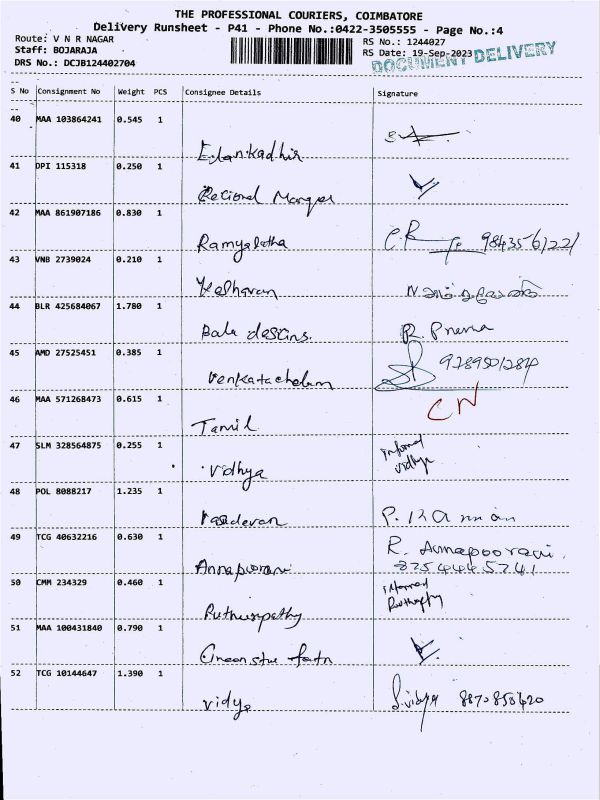 THE PROFESSIONAL COURIERS, COIMBATORE
Delivery Runsheet - P41 - Phone No.:0422-3505555 - Page No.:4
Route: V N R NAGAR RS No.: 1244027
Staff: BOJARAJA RS Date: 19-Sep-2023
DRS No.: DCJB124402704 DOCUMENT DELIVERY
S No Consignment No Weight PCS Consignee Details Signature
40 MAA 103864241 0.545 1
Elankadhir
41 DPI 115318 0.250 1
Regional Manager
42 MAA 861907186 0.830 1
Ramyalatha C.R
43 VNB 2739024 0.210 1
Kesharan N.
44 BLR 425684067 1.780 1
Bala designs. R. Prema
45 AMD 27525451 0.385 1
Venkatachalam
46 MAA 571268473 0.615 1 CN
Tamil
47 SLM 328564875 0.255 1 informed
Vidhya vidhya
48 POL 8088217 1.235 1
Vasudevan P. Kannan
49 TCG 40632216 0.630 1 R. Annapoorani.
Annapoorani 8754445741
50 CMM 234329 0.460 1 informed
51 MAA 100431840 0.790 1
52 TCG 10144647 1.390 1
vidya S.vidya 8870850420